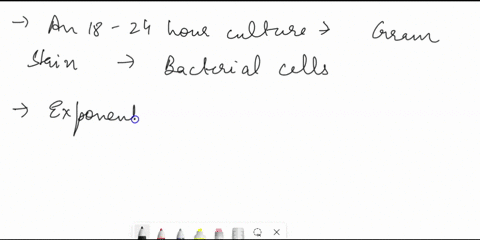 → An 18-24 hour culture → Gram
Stain → Bacterial cells
→ Exponent